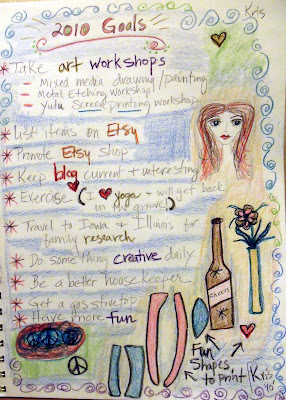 Kris
2010 Goals
* Take art workshops
- Mixed media drawing/painting
- Metal Etching Workshop!
- Yudu Screen printing workshop
* List items on Etsy
* Promote Etsy shop
* Keep blog current + interesting
* Exercise (I ♥ yoga + will get back
in the groove)
* Travel to Iowa + Illinois for
family research
* Do some thing creative daily
* Be a better housekeeper
* Get a gas stovetop
* Have more fun
Cheers
Fun
Shapes
to print
Kris
'10